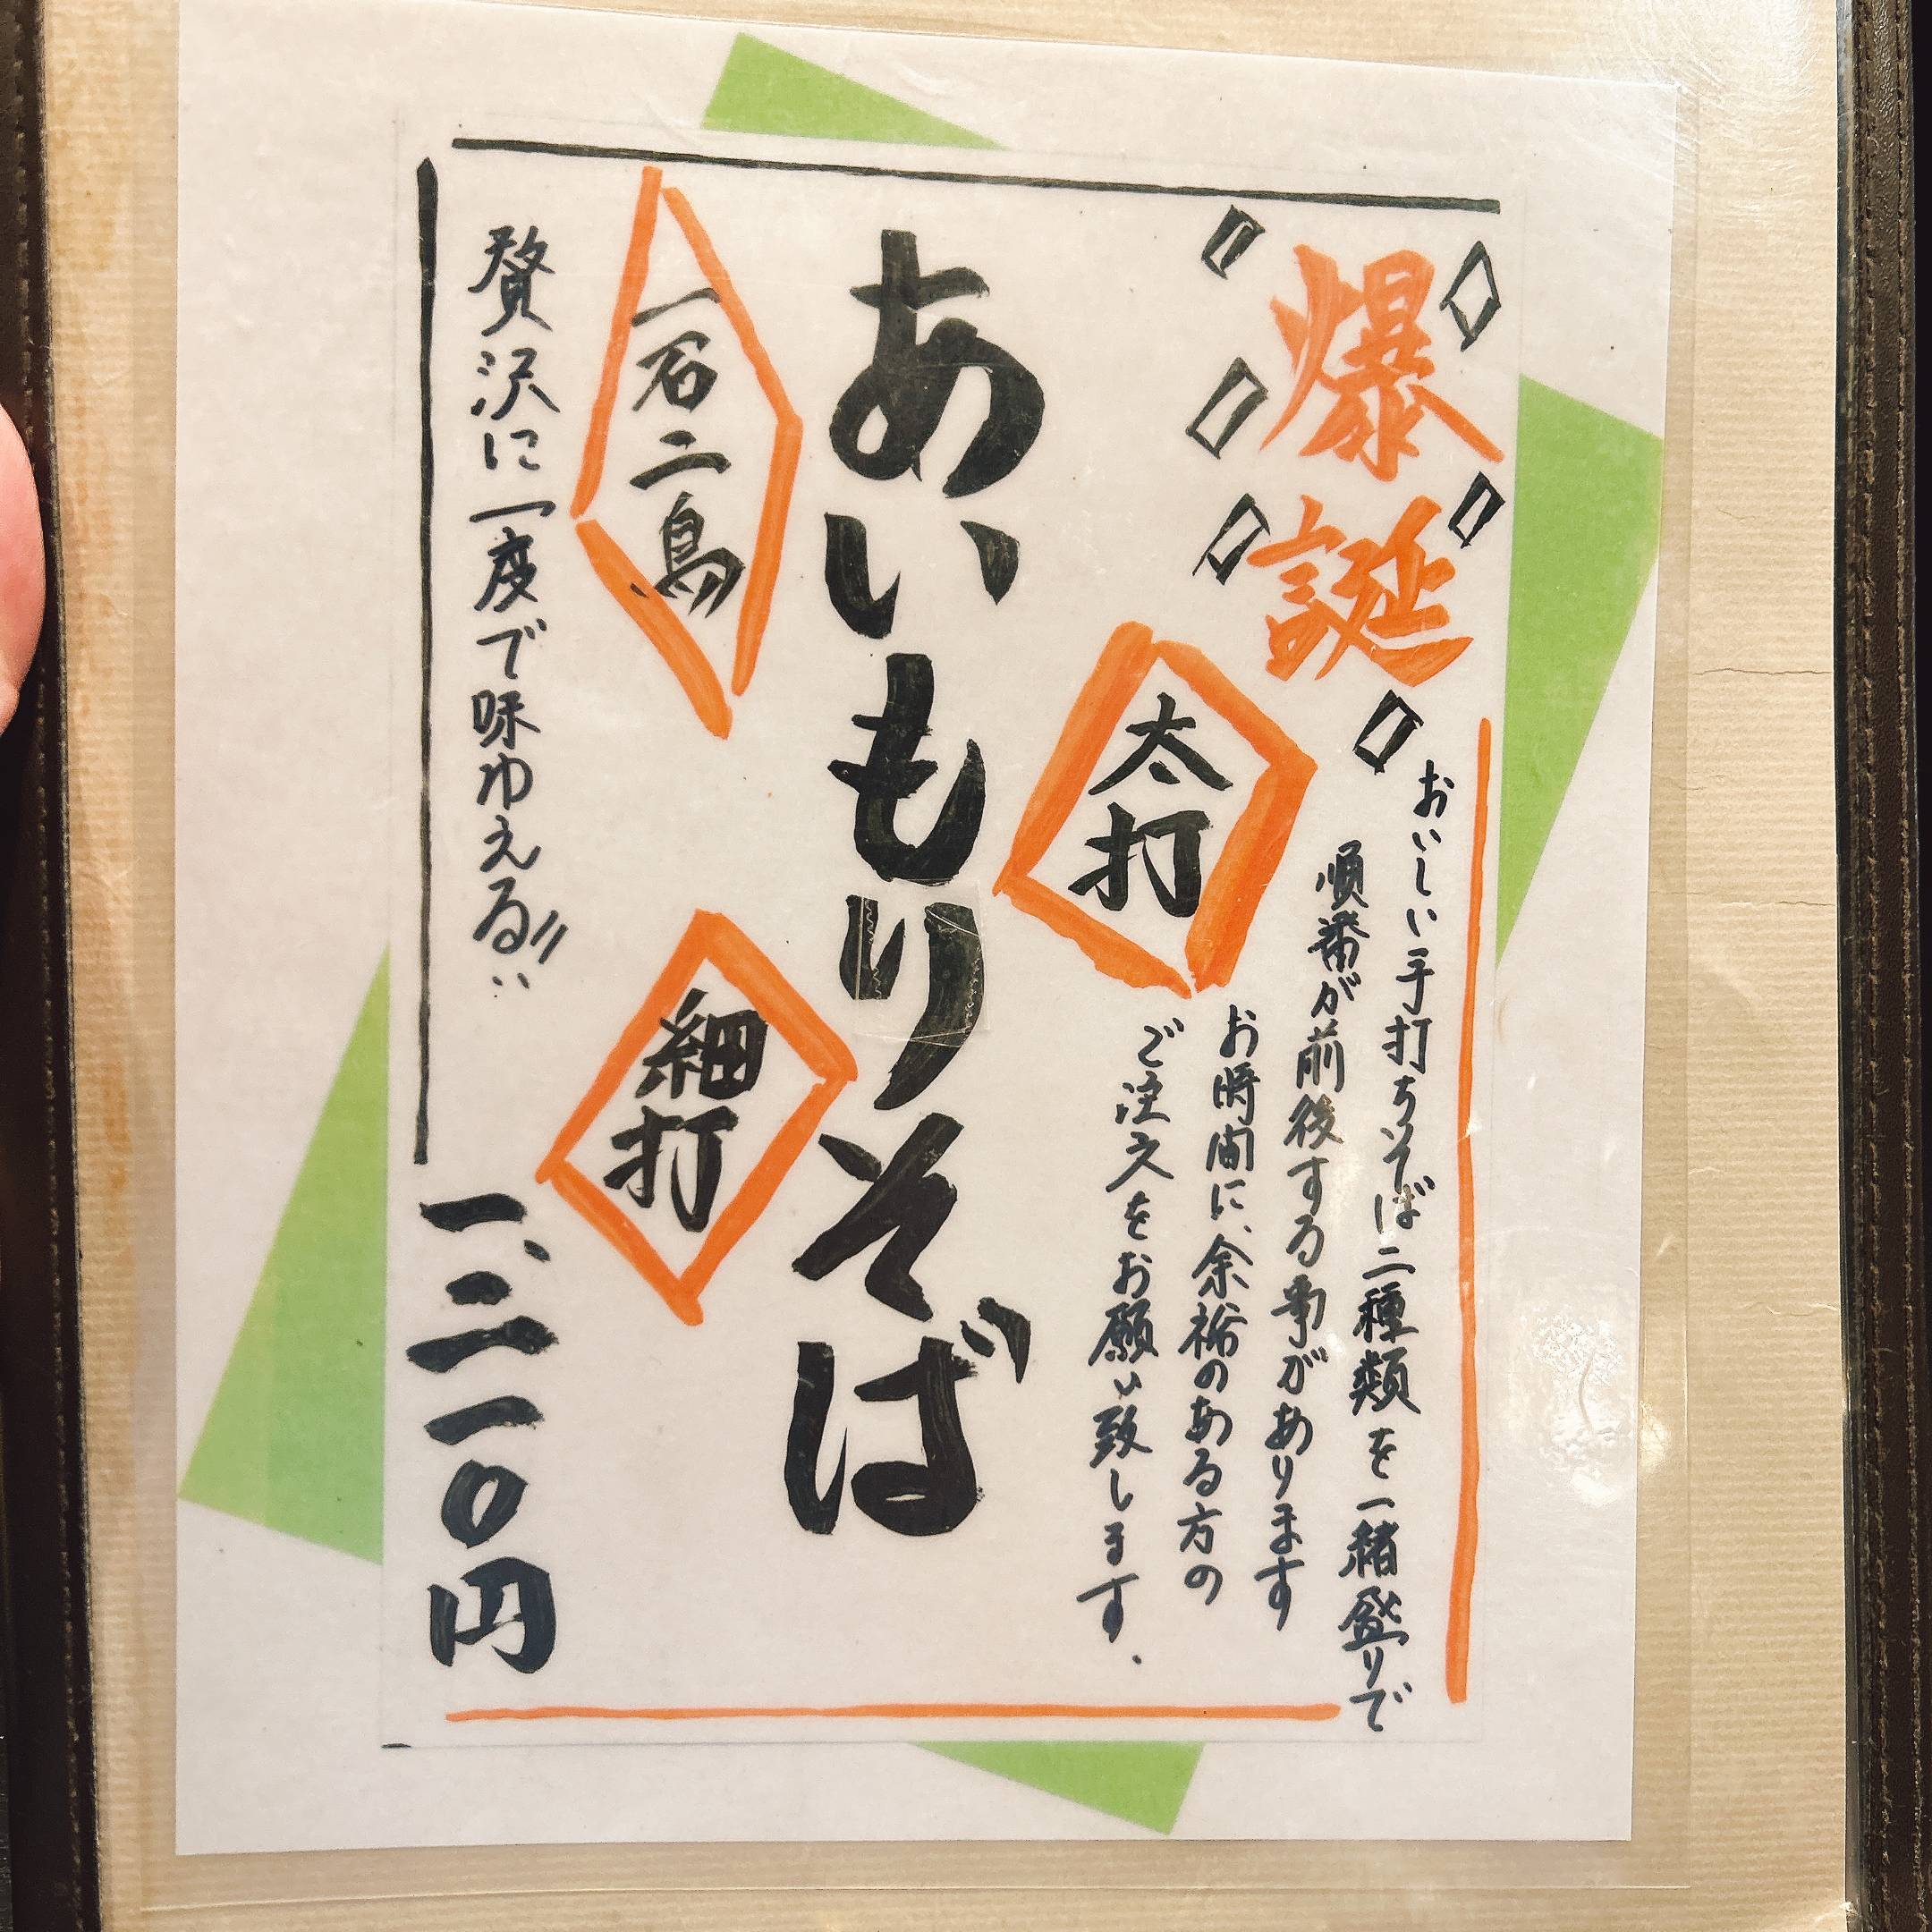 爆誕
おいしい手打ちそば二種類を一緒盛りで
順番が前後する事があります
お時間に、余裕のある方の
ご注文をお願い致します.
太打
あいもりそば
一石二鳥
細打
贅沢に一度で味わえる!!
一、二一〇円